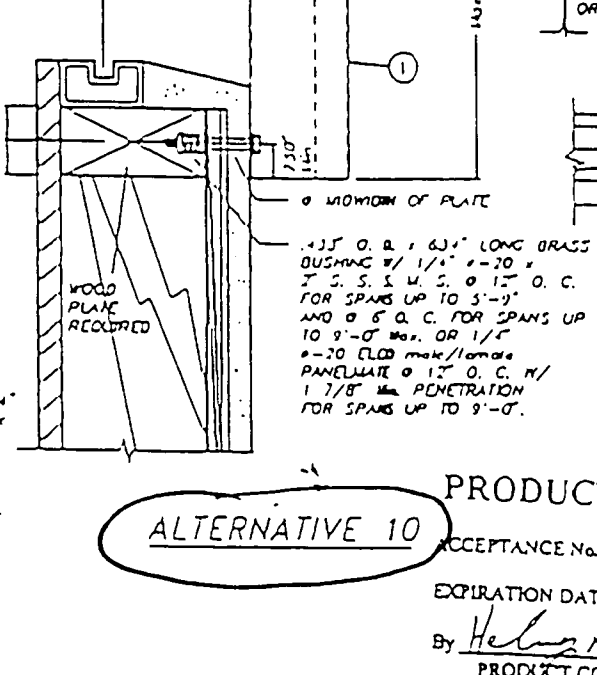 OR
1
@ MIDWIDTH OF PLATE
.435" O. D. x .634" LONG BRASS
BUSHING W/ 1/4" ø-20 x
2" S. S. S. M. S. @ 12" O. C.
FOR SPANS UP TO 5'-9"
AND @ 6" O. C. FOR SPANS UP
TO 9'-0" Max. OR 1/4"
ø-20 ELCO male/female
PANELMATE @ 12" O. C. W/
1 7/8" Min. PENETRATION
FOR SPANS UP TO 9'-0".
WOOD
PLATE
REQUIRED
ALTERNATIVE 10
PRODUC
ACCEPTANCE No.
EXPIRATION DAT
By
PRODUCT CO